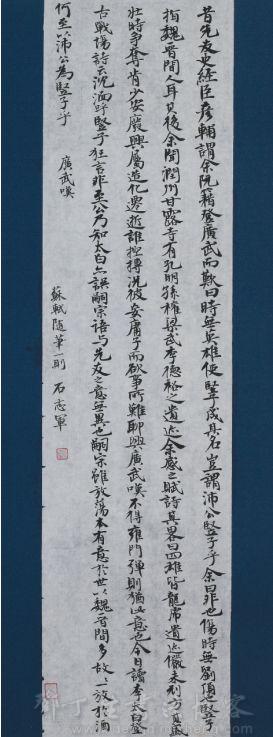 昔先友史經臣彥輔謂余阮籍登廣武而歎曰時無英雄使豎成其名豈謂沛公豎子乎余曰非也傷時無劉項也豎子
指魏晉間人耳其後余聞潤州甘露寺有孔明孫權梁武李德裕之遺迹余感之賦詩其略曰四雄皆龍虎遺迹儼未刓方其盛
壯時爭奪肯少安廢興屬造化遷逝誰控摶況彼妄庸子而欲事所難聊興廣武嘆不得雍門彈則猶此意也今日讀李太白登
古戰場詩云沉湎呼豎子狂言非至公乃知太白亦誤嗣宗語與先友之意無異也嗣宗雖放蕩本有意於世以魏晉間多故故一放於酒
何至以沛公為豎子乎 廣武嘆
蘇軾隨筆一則 石志軍